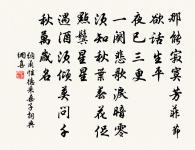 那能寂寞芳菲節
欲話生平
夜已三更
一闋悲歌淚暗零
須知秋葉春花促
點鬢星星
遇酒須傾莫問千
秋萬歲名
納蘭性德采桑子詞典